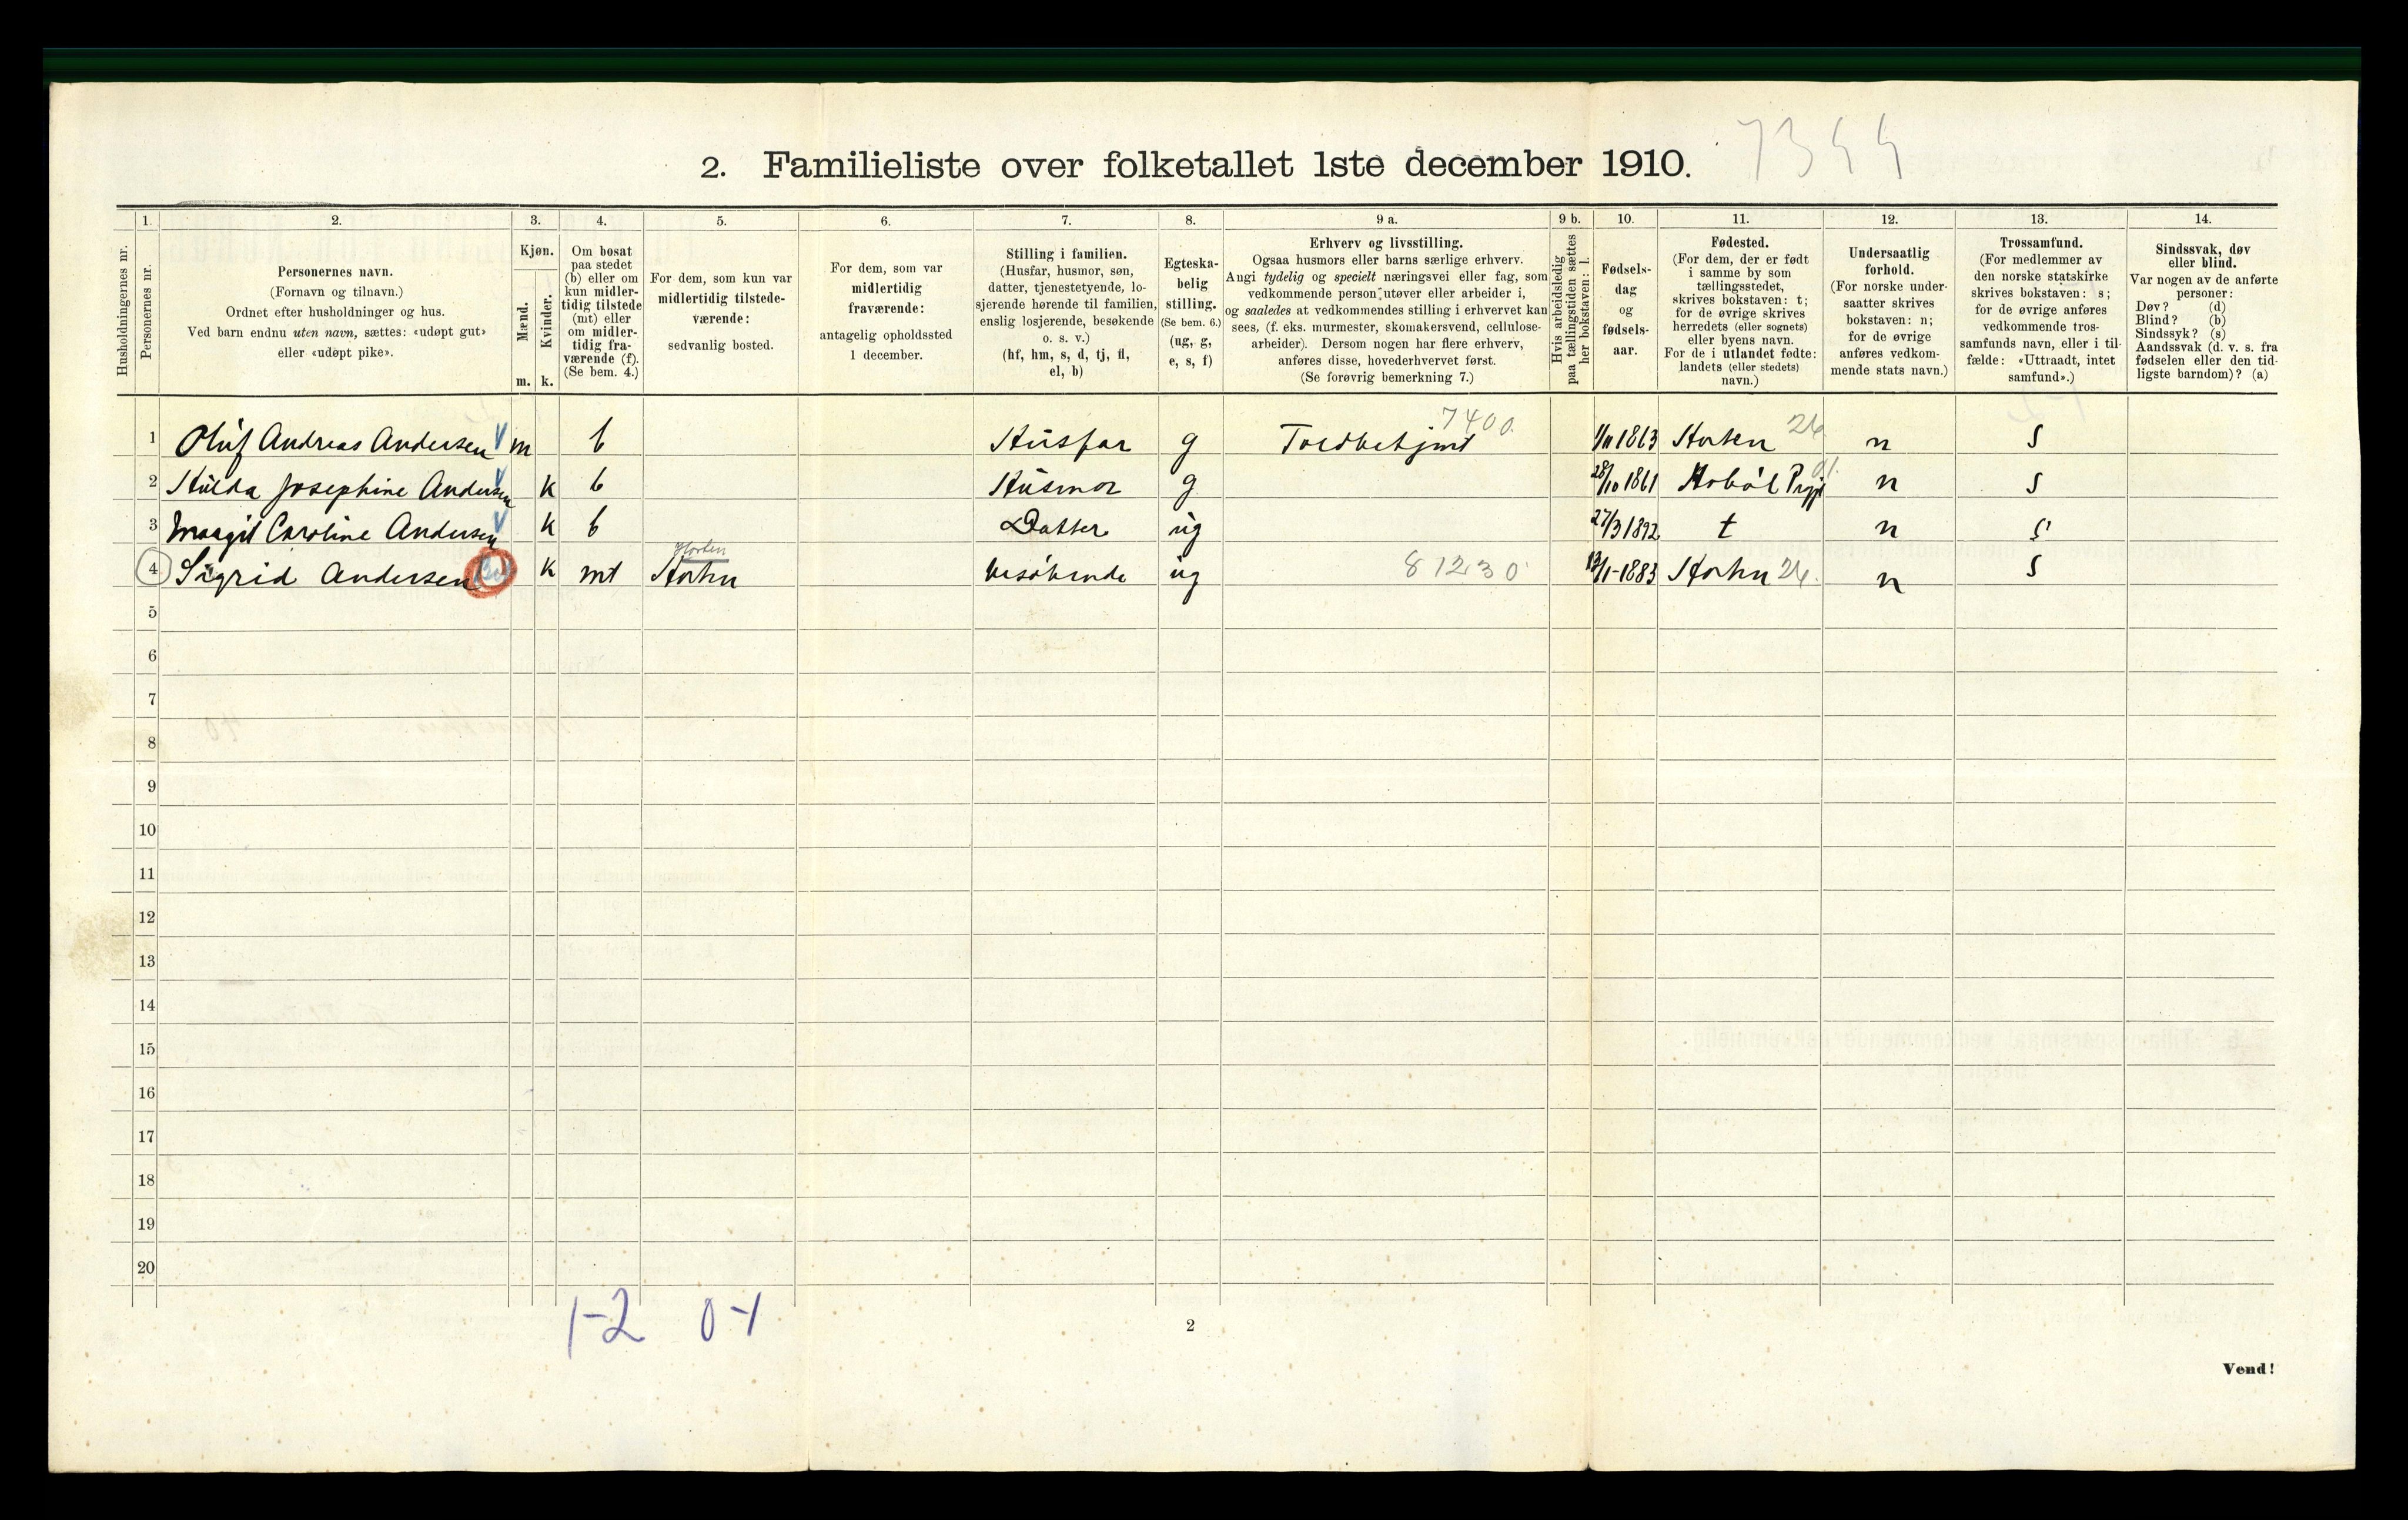 7344
2. Familieliste over folketallet 1ste december 1910.
Husholdningernes nr.
1.
Personernes nr.
2.
Personernes navn.
(Fornavn og tilnavn.)
Ordnet efter husholdninger og hus.
Ved barn endnu uten navn, sættes: «udøpt gut»
eller «udøpt pike».
3.
Kjøn.
Mænd.
Kvinder.
m. k.
4.
Om bosat
paa stedet
(b) eller om
kun midler-
tidig tilstede
(mt) eller
om midler-
tidig fra-
værende (f).
(Se bem. 4.)
5.
For dem, som kun var
midlertidig tilstede-
værende:
sedvanlig bosted.
6.
For dem, som var
midlertidig
fraværende:
antagelig opholdssted
1 december.
7.
Stilling i familien.
(Husfar, husmor, søn,
datter, tjenestetyende, lo-
sjerende hørende til familien,
enslig losjerende, besøkende
o. s. v.)
(hf, hm, s, d, tj, fl,
el, b)
8.
Egteska-
belig
stilling.
(Se bem. 6.)
(ug, g,
e, s, f)
9 a.
Erhverv og livsstilling.
Ogsaa husmors eller barns særlige erhverv.
Angi tydelig og specielt næringsvei eller fag, som
vedkommende person utøver eller arbeider i,
og saaledes at vedkommendes stilling i erhvervet kan
sees, (f. eks. murmester, skomakersvend, cellulose-
arbeider). Dersom nogen har flere erhverv,
anføres disse, hovederhvervet først.
(Se forøvrig bemerkning 7.)
9 b.
Hvis arbeidsledig
paa tællingstiden sættes
her bokstaven: l.
10.
Fødsels-
dag
og
fødsels-
aar.
11.
Fødested.
(For dem, der er født
i samme by som
tællingsstedet,
skrives bokstaven: t;
for de øvrige skrives
herredets (eller sognets)
eller byens navn.
For de i utlandet fødte:
landets (eller stedets)
navn.)
12.
Undersaatlig
forhold.
(For norske under-
saatter skrives
bokstaven: n;
for de øvrige
anføres vedkom-
mende stats navn.)
13.
Trossamfund.
(For medlemmer av
den norske statskirke
skrives bokstaven: s;
for de øvrige anføres
vedkommende tros-
samfunds navn, eller i til-
fælde: «Uttraadt, intet
samfund».)
14.
Sindssvak, døv
eller blind.
Var nogen av de anførte
personer:
Døv? (d)
Blind? (b)
Sindssyk? (s)
Aandssvak (d. v. s. fra
fødselen eller den tid-
ligste barndom)? (a)
7400
1 Oluf Andreas Andersen m b Husfar g Toldbetjent 1/11 1863 Horten 26 n s
2 Hulda Josephine Andersen k b Husmor g 28/10 1861 Hobøl 01. n s
3 Margit Caroline Andersen k b Datter ug 27/3 1892 t n s
Horten
4 Sigrid Andersen k mt Horten besøkende ug 81230 13/1-1883 Horten 26. n s
5
6
7
8
9
10
11
12
13
14
15
16
17
18
19
20
1-2 0-1
2
Vend!